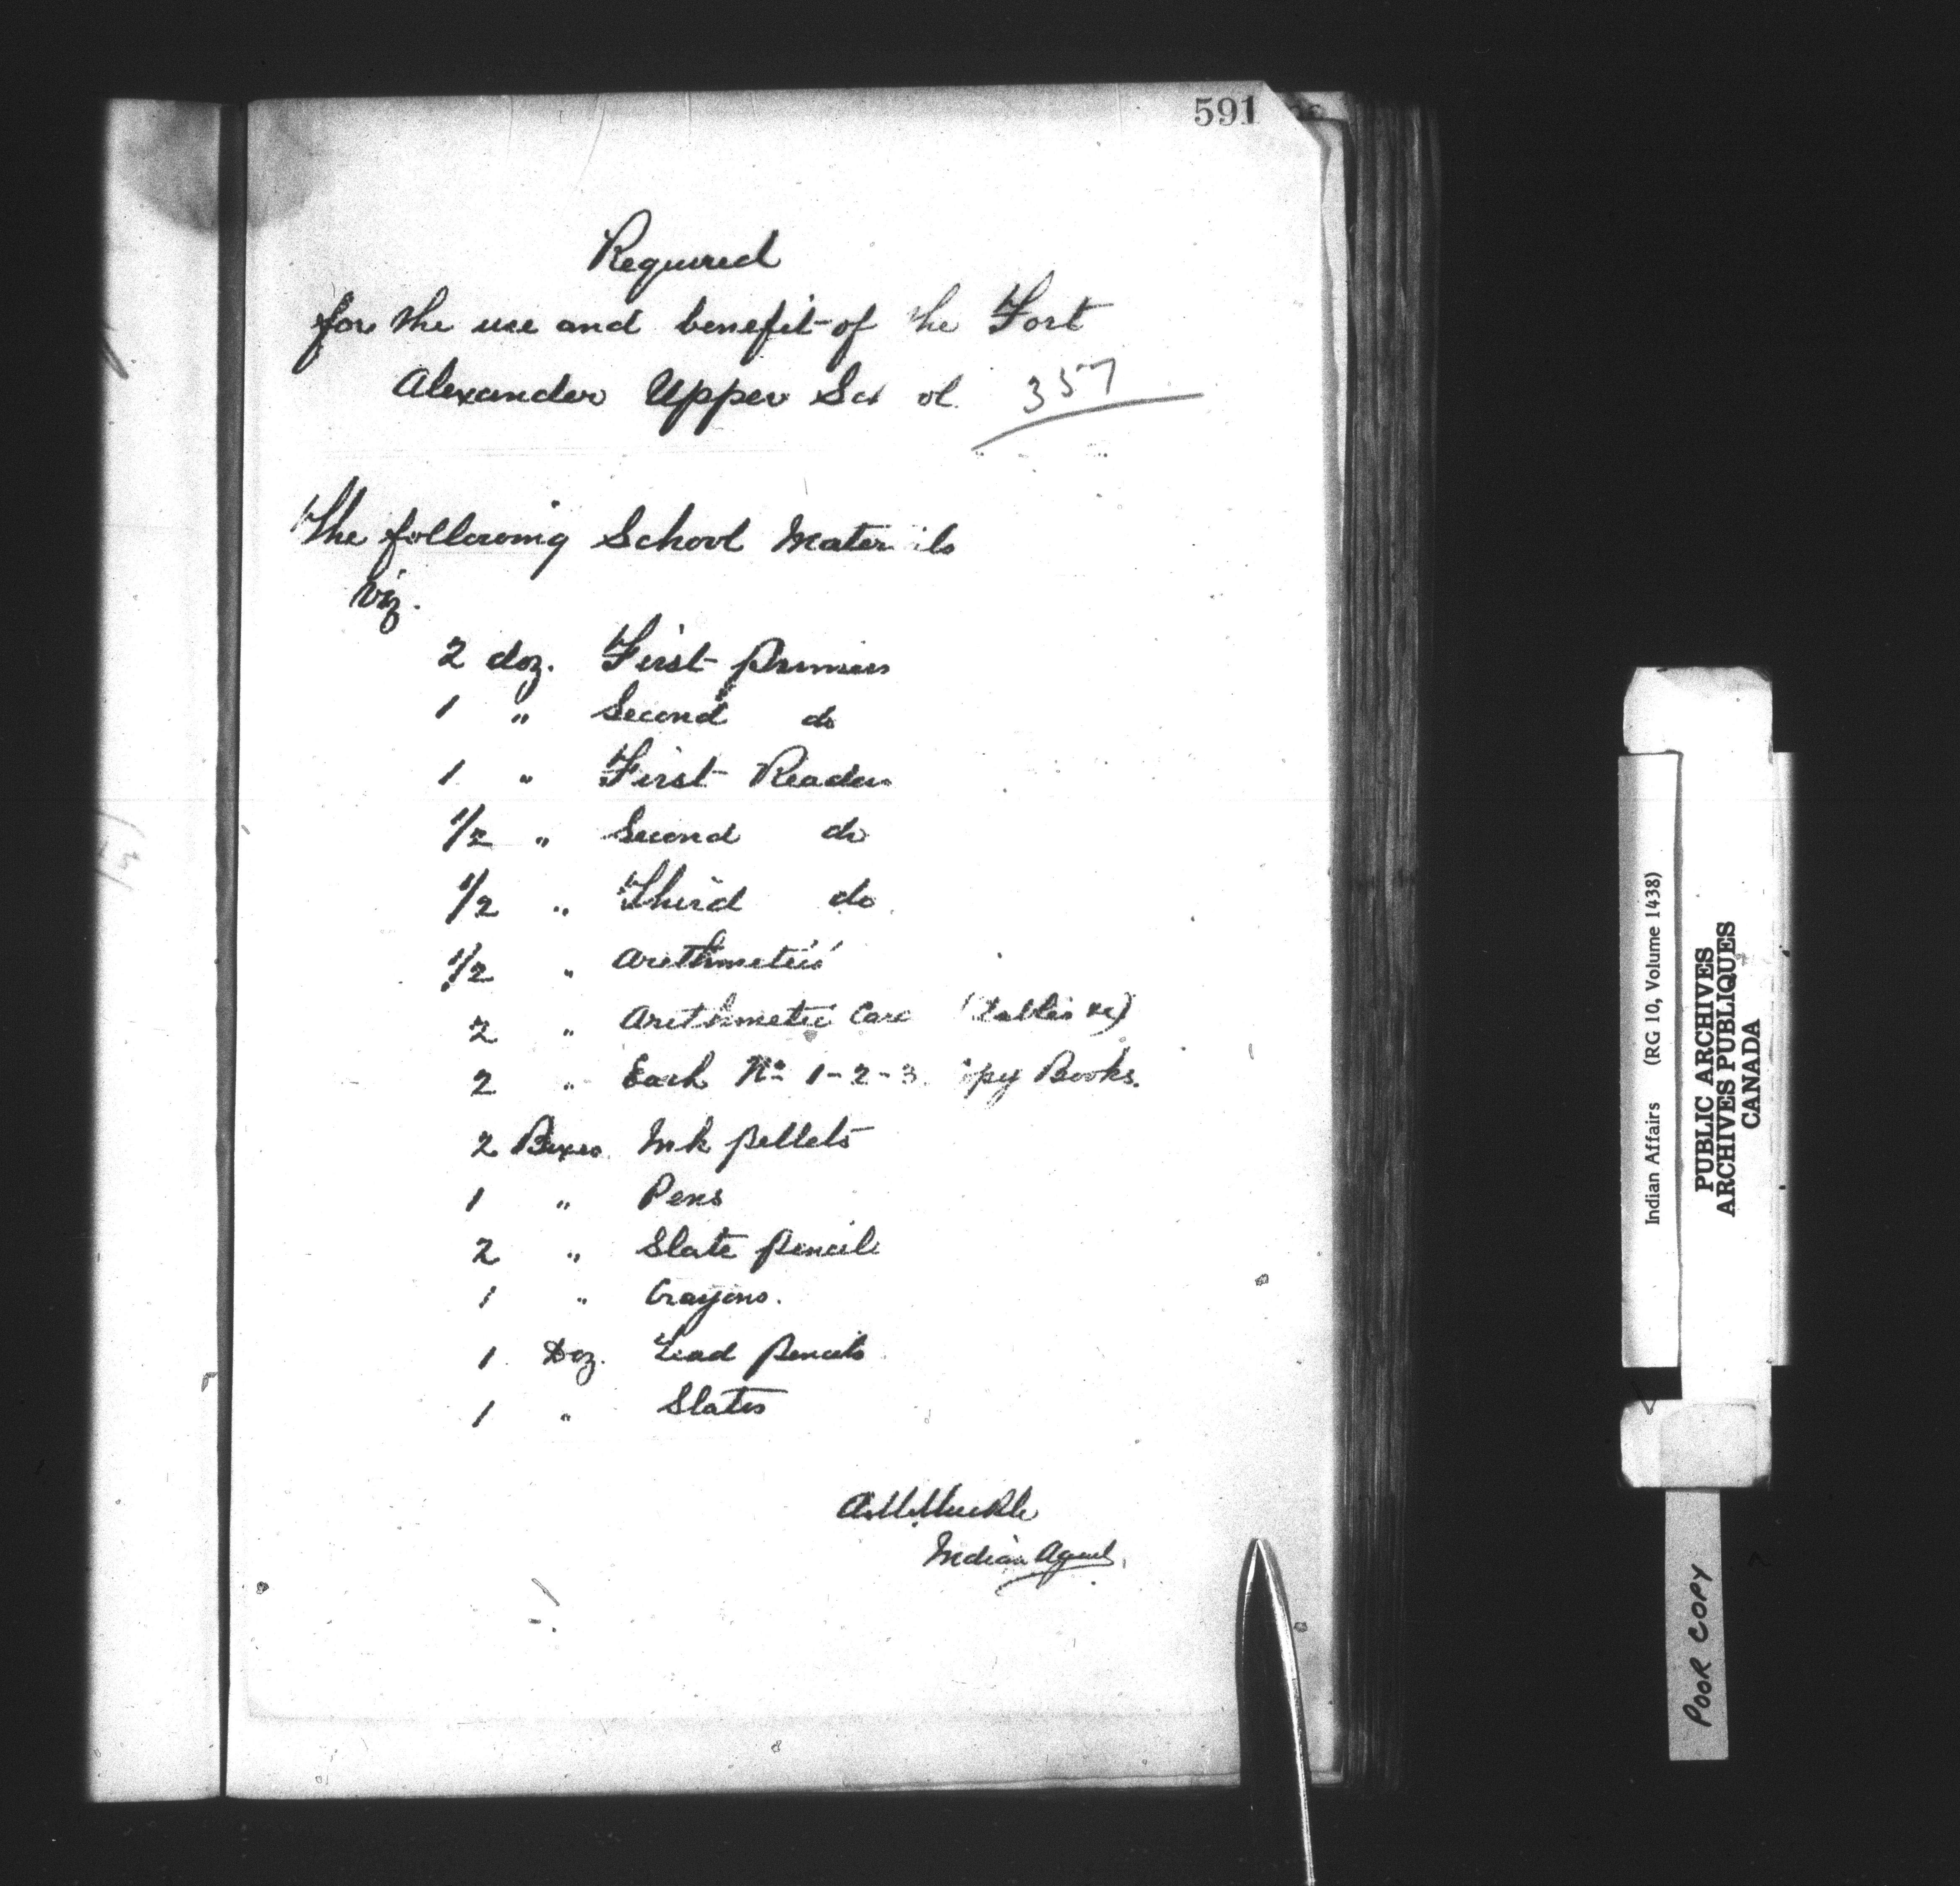 591
Required
for the use and benefit of the Fort
Alexander Upper Sch ol 357
The following School Mater ils
Viz.
2 doz. First primers
1 " Second do
1 " First Readers
1/2 " Second do
1/2 " Third do
1/2 " Arithmetics
2 " Arithmetic Car (tables &c)
2 " Each No 1-2-3 opy Books.
2 Boxes Ink pellets
1 " Pens
2 " Slate pencils
1 " Crayons.
1 Doz. Lead pencils
1 " Slates
A. M. Muckle
Indian Agent.
Indian Affairs (RG 10, Volume 1438)
PUBLIC ARCHIVES
ARCHIVES PUBLIQUES
CANADA
POOR COPY